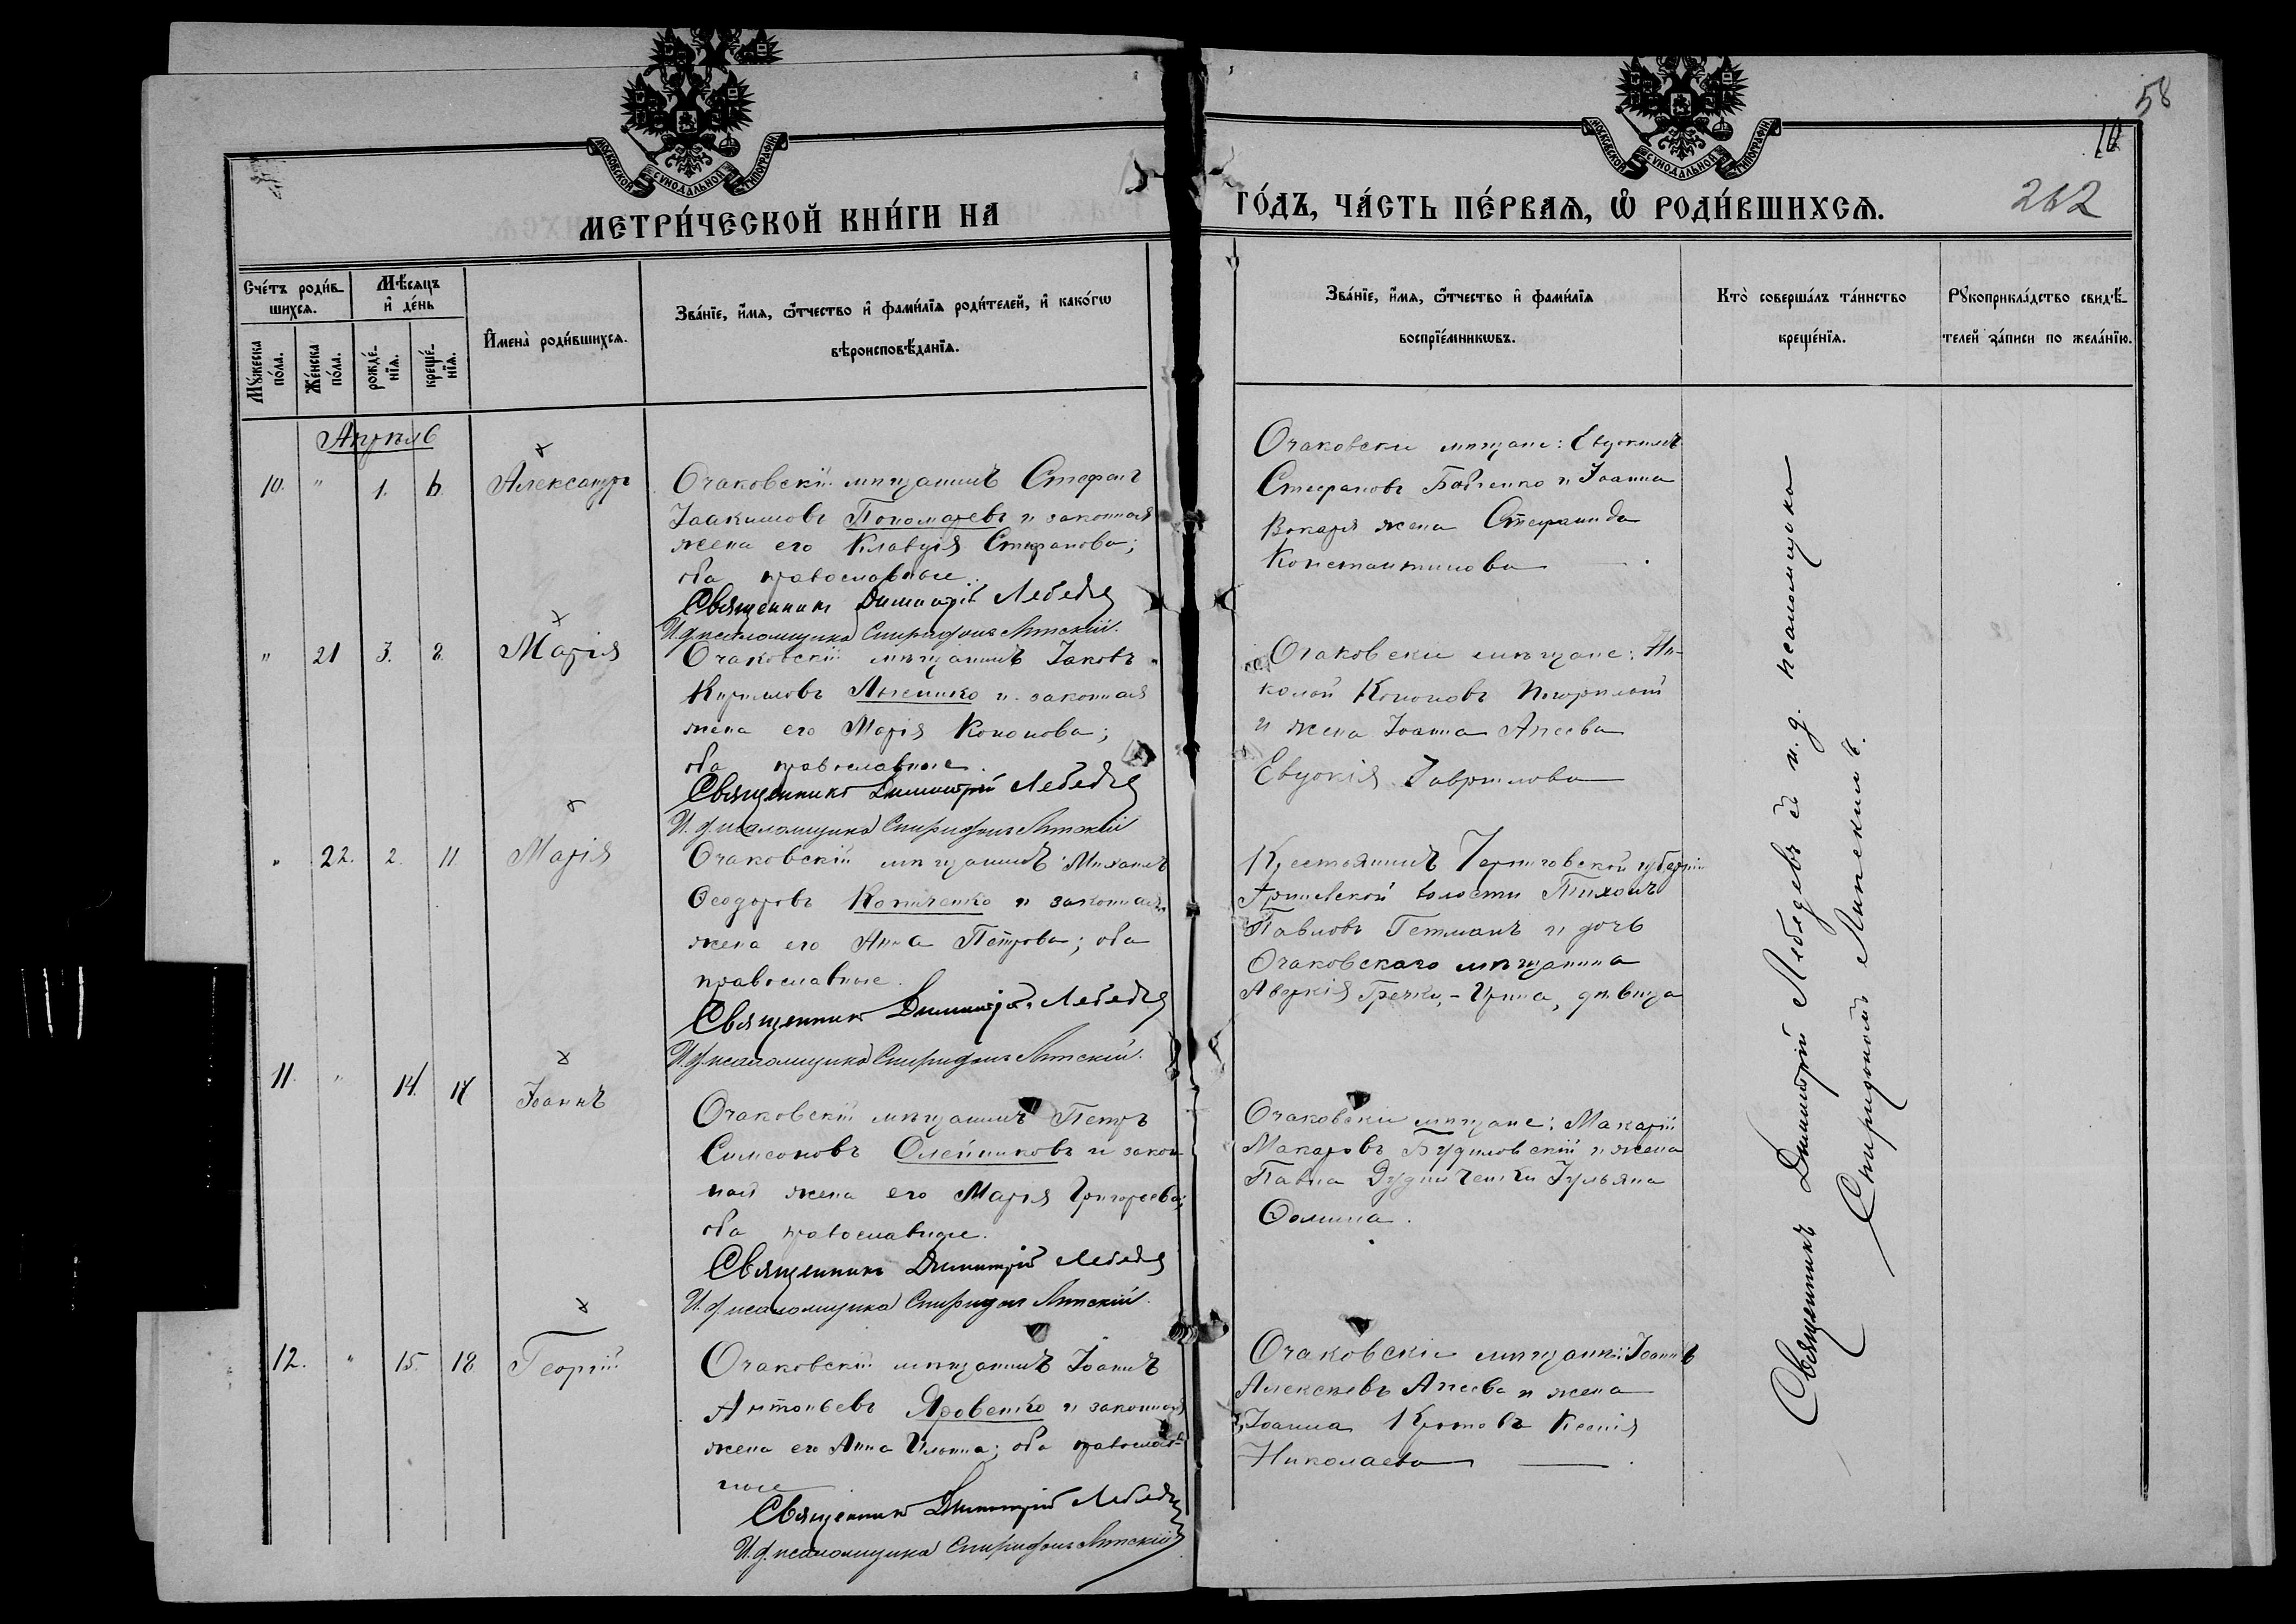 МОСКОВСКОЙ СѴНОДАЛЬНОЙ ТИПОГРАФІИ
МОСКОВСКОЙ СѴНОДАЛЬНОЙ ТИПОГРАФІИ
58
262
МЕТРИ́ЧЕСКОЙ КНИ́ГИ НА
ГО́ДЪ, ЧА́СТЬ ПЕ́РВАЯ, Ѿ РОДИ́ВШИХСЯ.
Сче́тъ роди́в-
шихся.
Мꙋ́жеска по́ла.
Же́нска по́ла.
Мѣ́сяцъ и҆ де́нь
рожде́-
нїя.
креще́-
нїя.
И҆мена̀ роди́вшихся.
Зва́нїе, и҆́мя, ѻ҆́тчество и҆ фами́лїя роди́телей, и҆ како́гѡ
вѣроисповѣ́данїя.
Зва́нїе, и҆́мя, ѻ҆́тчество и҆ фами́лїя
воспрїе́мникѡвъ.
Кто̀ соверша́лъ та́инство
креще́нїя.
Рꙋкоприкла́дство свидѣ́-
телей за́писи по жела́нїю.
Апрѣль
10. " 1. 6. Александръ
Очаковскій мѣщанинъ Стефанъ
Іоакимовъ Пономаревъ и законная
жена его Клавдія Стефанова;
оба православные.
Священникъ Димитрій Лебедевъ
И. д. псаломщика Спиридонъ Липскій.
Очаковскіе мѣщане: Евдокимъ
Стефановъ Бабченко и Іоанна
Вокаря жена Стефанида
Константинова
" 21 3. 8. Марія
Очаковскій мѣщанинъ Іаковъ
Кириловъ и законная
жена его Марія Кононова;
оба православные.
Священникъ Димитрій Лебедевъ
И. д. псаломщика Спиридонъ Липскій
Очаковскіе мѣщане: Ни-
колай Кононовъ
и жена Іоанна Агеева
Евдокія Гаврилова
" 22. 2. 11 Марія
Очаковскій мѣщанинъ Михаилъ
Ѳеодоровъ и законная
жена его Анна Петрова; оба
православные.
Священникъ Димитрій Лебедевъ
И. д. псаломщика Спиридонъ Липскій.
Крестьянинъ Черниговской губерніи
волости Тихонъ
Павловъ Гетманъ и дочь
Очаковскаго мѣщанина
Аверкія Гречки, - Ирина, дѣвица
11. " 14. 17 Іоаннъ
Очаковскій мѣщанинъ Петръ
Симеоновъ Олейниковъ и закон
ная жена его Марія Григорьева;
оба православные.
Священникъ Димитрій Лебедевъ
И. д. псаломщика Спиридонъ Липскій.
Очаковскіе мѣщане: Макарій
Макаровъ Будиловскій и жена
Павла Дудниченки Іульяна
Ѳомина.
12. " 15. 18 Георгій
Очаковскій мѣщанинъ Іоаннъ
Антоньевъ Яровенко и законная
жена его Анна Ильина; оба православ-
ные
Священникъ Димитрій Лебедевъ
И. д. псаломщика Спиридонъ Липскій
Очаковскіе мѣщане: Іоаннъ
Алексѣевъ Агеева и жена
Іоанна Кротова Ксенія
Николаева
Священникъ Димитрій Лебедевъ съ и. д. псаломщика
Спиридономъ Липскимъ.